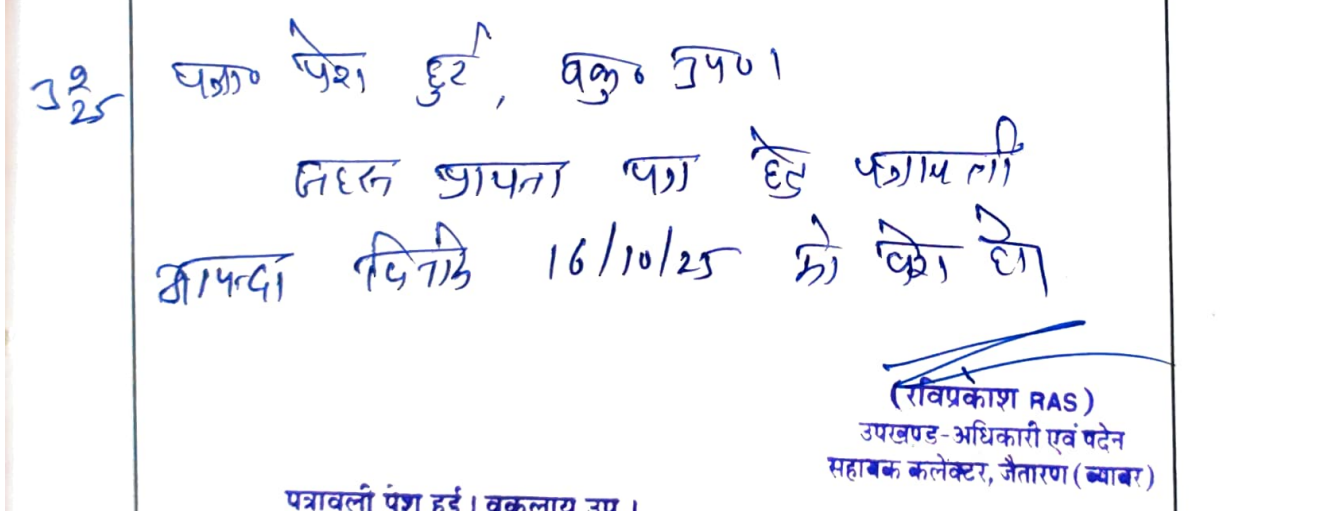 3 9/25
पत्रा० पेश हुई, वकु० उप०।
बहस प्रार्थना पत्र हेतु पत्रावली
आयन्दा दिनांक 16/10/25 को पेश हो।
(रविप्रकाश RAS)
उपखण्ड-अधिकारी एवं पदेन
सहायक कलेक्टर, जैतारण (ब्यावर)
पत्रावली पेश हुई। वकलाय उप।